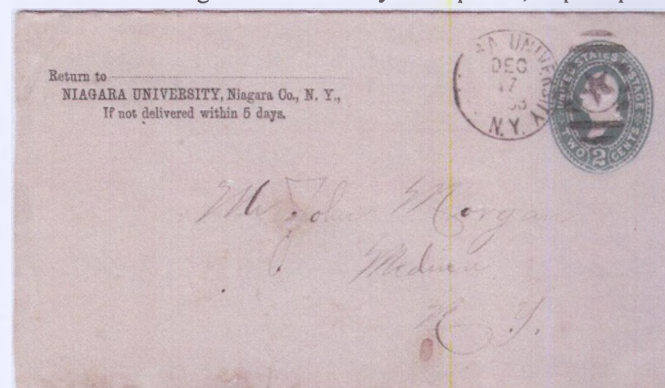 Return to
NIAGARA UNIVERSITY, Niagara Co., N. Y.,
If not delivered within 5 days.
UNIVERSITY
DEC
17
N.Y.
UNITED STATES POSTAGE
TWO 2 CENTS
Mr John Morgan
Medina
N. Y.